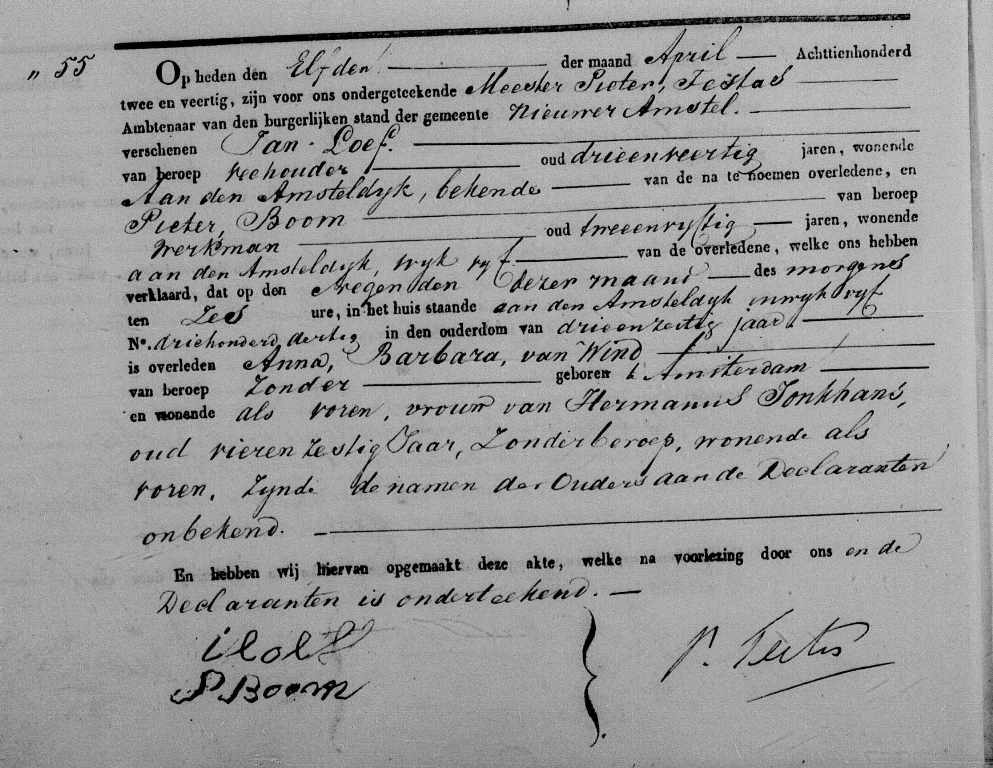 „ 55
Op heden den Elfden der maand April Achttienhonderd
twee en veertig, zijn voor ons ondergeteekende Meester Pieter, Testas
Ambtenaar van den burgerlijken stand der gemeente Nieuwer Amstel.
verschenen Jan Loef.
van beroep veehouder oud drieenveertig jaren, wonende
Aan den Amsteldyk, bekende van de na te noemen overledene, en
Pieter, Boom van beroep
Werkman oud tweeenvyftig jaren, wonende
aan den Amsteldyk, wyk vyf van de overledene, welke ons hebben
verklaard, dat op den Negenden dezer maand des morgens
ten Zes ure, in het huis staande aan den Amsteldyk in wyk vyf
No. driehonderd dertig in den ouderdom van drieenzestig jaar.
is overleden Anna, Barbara, van Wind
van beroep Zonder geboren te Amsterdam
en wonende als voren, vrouw van Hermanus Jonkhans,
oud vierenzestig Jaar, Zonder beroep, wonende als
voren. Zynde de namen der Ouders aan de Declaranten
onbekend.
En hebben wij hiervan opgemaakt deze akte, welke na voorlezing door ons en de
Declaranten is onderteekend.
P Boom
P. Testas